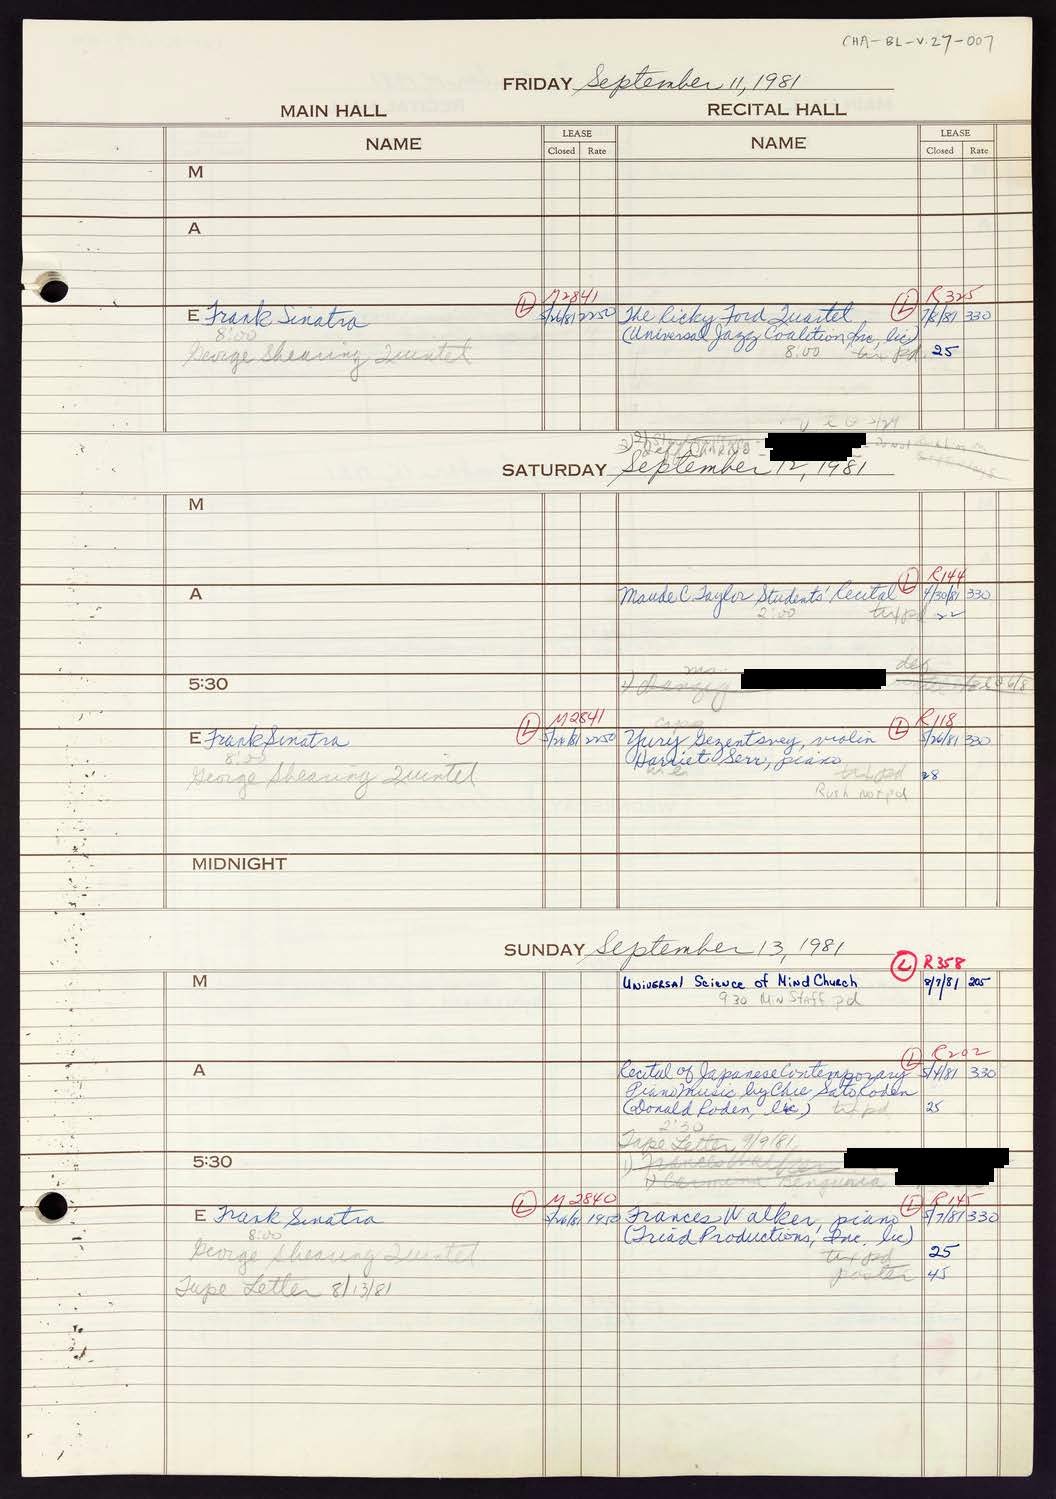 CHA-BL-V.27-007
FRIDAY September 11, 1981
MAIN HALL
RECITAL HALL
NAME
LEASE
Closed Rate
NAME
LEASE
Closed Rate
M
A
M2841
R325
E Frank Sinatra
L
5/20/81 2250
The Ricky Ford Quartet
L
7/8/81 330
8:00
(Universal Jazz Coalition, Inc, lic)
George Shearing Quintet
8:00 tix pd
25
SATURDAY September 12, 1981
M
R144
A
Maude C. Taylor Students' Recital
L
4/30/81 330
2:00 tix pd
22
5:30
1) Danzig
M2841
R118
E Frank Sinatra
L
5/20/81 2250
Yury Gezentsvey, violin
L
5/26/81 330
8:00
Harriet Serr, piano
George Shearing Quintet
tix pd
28
Rush not pd
MIDNIGHT
SUNDAY September 13, 1981
L R358
M
Universal Science of Mind Church
8/7/81 205
9 30 Min Staff pd
R202
A
Recital of Japanese Contemporary
L
5/4/81 330
Piano Music by Chie Sato Roden
(Donald Roden, lic) tix pd
25
2:30
Tape Letter 9/9/81
5:30
1) Frances Walker
M2840
R145
E Frank Sinatra
L
5/20/81 1950
Frances Walker, piano
L
5/7/81 330
8:00
(Triad Productions, Inc. lic)
George Shearing Quintet
tix pd
25
poster
45
Tape Letter 8/13/81